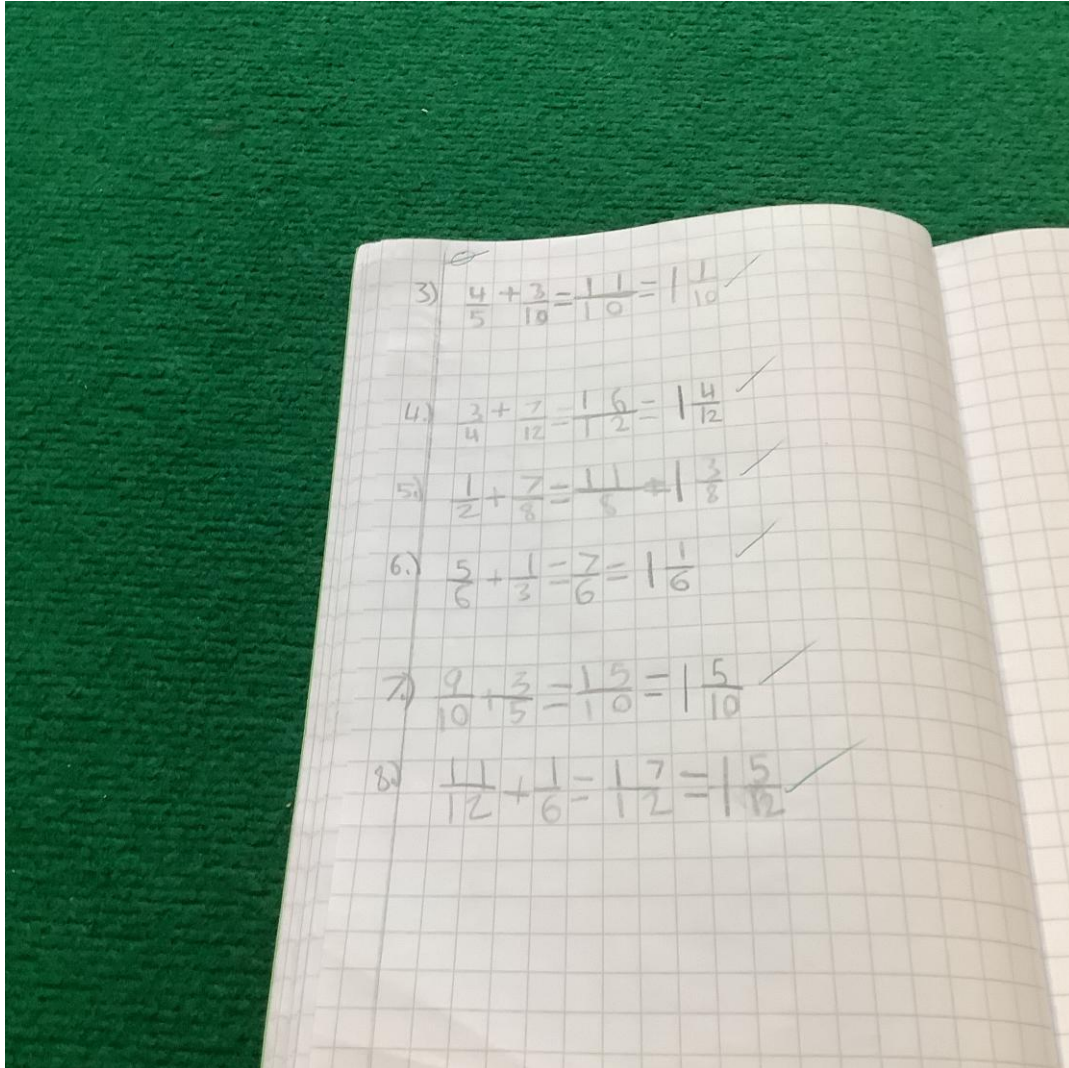 3) 4/5 + 3/10 = 11/10 = 1 1/10
4.) 3/4 + 7/12 = 16/12 = 1 4/12
5.) 1/2 + 7/8 = 11/8 = 1 3/8
6.) 5/6 + 1/3 = 7/6 = 1 1/6
7.) 9/10 + 3/5 = 15/10 = 1 5/10
8.) 11/12 + 1/6 = 17/12 = 1 5/12